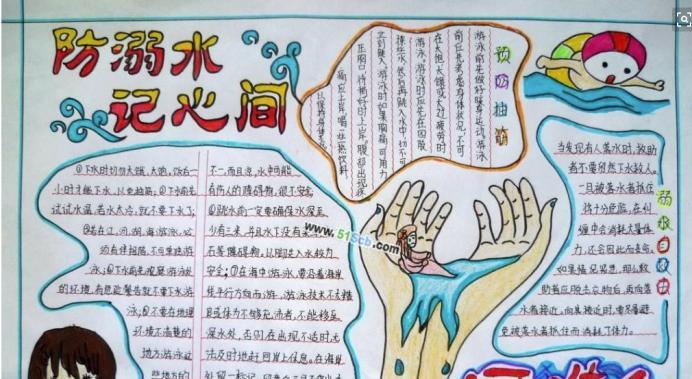 防溺水
记心间
预防抽筋
游泳前先做好暖身运动,游泳
前应先考虑身体状况,不可
在太饱太饿或太过疲劳时
游泳,游泳时应先在四肢
然后再跳入水中,切不可
立刻跳入,游泳时如果胸痛,可用力
压胸口,待稍好时上岸。腹部出现疼
痛应上岸,喝一些热饮料
以保持身体
①下水时切勿太饿、太饱,饭后一
小时才能下水,以免抽筋;②下水前先
试试水温,若水太冷,就不要下水了;
③若在江、河、湖、海游泳,必
须有伴相陪,不可单独游
泳;④下水前先观察游泳处
的环境,有危险警告就不要下水游
泳;⑤不要在地理
环境不清楚的
地方游泳
些地方的
不一,而且凉,水中可能
有伤人的障碍物,很不安全
⑥跳水前一定要确保水深至
少有三米,并且水下没有
石等障碍物。以脚先入水较为
安全;⑦在海中游泳,要沿着海岸
线平行方向而游,游泳技术不太精
良或体力不够充沛者,不能移至
深水处,否则在出现不适时无
法及时地赶回岸上休息。在海岸
www.51Scb.com
溺水自救
当发现有人落水时,救助
者不要贸然下水救人。
一旦被落水者抓住
将十分危险,在纠
缠中会消耗大量体
力,还会因此而丧命。
如果情况
助者应脱去衣物后,再向落
水者接近。向其接近时,要尽量避
免被落水者抓住而消耗了体力。